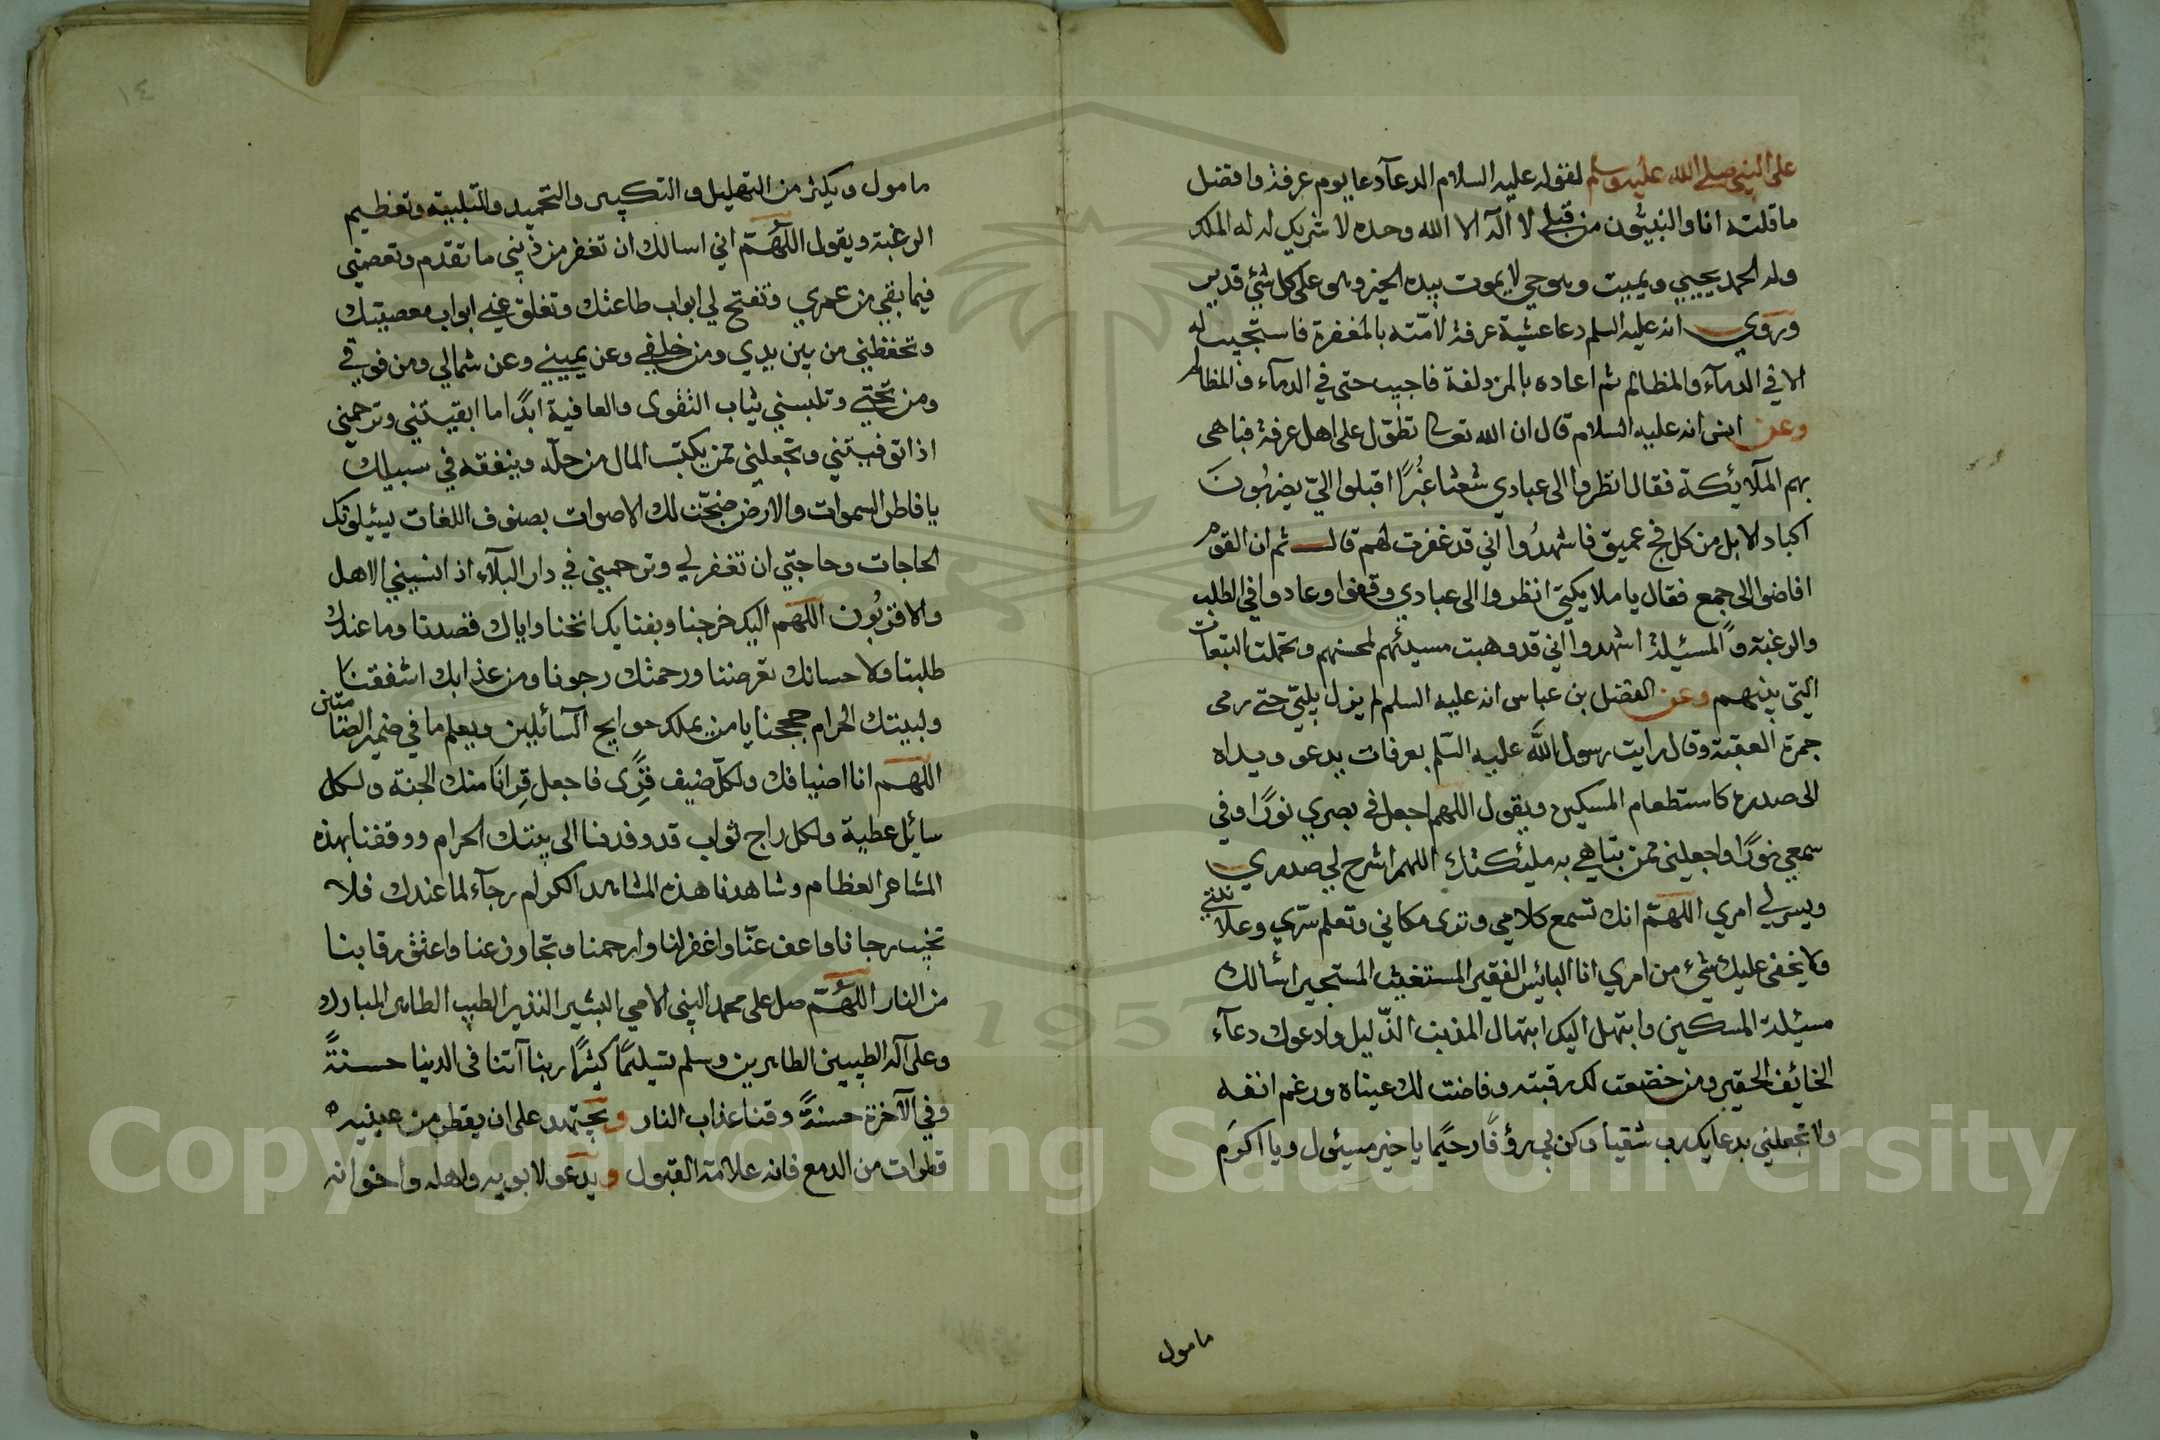 على النبي صلى الله عليه وسلم لقوله عليه السلام الدعآ دعا يوم عرفة وافضل
ما قلته انا والنبيئون من قبلي لا اله الا الله وحده لا شريك له له الملك
وله الحمد يحيي ويميت وهو حي لا يموت بيده الخير وهو على كل شئ قدير
وروي انه عليه السلم دعا عشية عرفة لامته بالمغفرة فاستجيب له
الا في الدمآء والمظالم ثم اعاده بالمزدلفة فاجيب حتى في الدمآء والمظالم
وعن انس انه عليه السلام قال ان الله تعالى تطوّل على اهل عرفة فباهى
بهم الملآئكة فقال انظروا الى عبادي شعثا غُبرًا اقبلوا اليّ يضربُونَ
اكباد الابل من كل فج عميق فاشهدُوا اني قد غفرت لهم قال ثم ان القوم
افاضوا الى جمع فقال يا ملايكتي انظروا الى عبادي وقفوا وعادوا في الطلب
والرغبة والمسئلة اشهدوا اني قد وهبت مسيئهم لمحسنهم وتحملت التبعات
التي بينهم وعن الفضل بن عباس انه عليه السلم لم يزل يلبّي حتى رمى
جمرة العقبة وقال رايت رسول الله عليه السّلم بعرفات يدعو ويداه
الى صدره كاستطعام المسكين ويقول اللهم اجعل في بصري نورًا وفي
سمعي نورًا واجعلني ممن تباهي به مليئكتك اللهم اشرح لي صدري
ويسر لي امري اللهمّ انك تسمع كلامي وترى مكاني وتعلم سّري وعلانيتي
ولا يخفى عليك شيء من امري انا البائس الفقير المستغيث المستجير اسألك
مسئلة المسكين وابتهل اليك ابتهال المذنب الذّليل وادعوك دعآء
الخائف الحقير ومن خضعت لك رقبته وفاضت لك عيناه ورغم انفه
ولا تجعلني بدعايك رب شقيا وكن بي رؤفًا رحيًما يا خير مسيئول ويا اكرَم
مامول
١٤
مامول ويكثر من التهليل والتكبير والتحميد والتلبية وتعظيم
الرغبة ويقول اللهُمّ اني اسالك ان تغفر من ذنبي ما تقدم وتعصمني
فيما بقي من عمري وتفتح لي ابواب طاعتك وتغلق عني ابواب معصيتك
وتحفظني من بين يدي ومن خلفي وعن يميني وعن شمالي ومن فوقي
ومن تحتي وتلبسني ثياب التقوى والعافية ابدًا ما ابقيتني وترحمني
اذا توفيتني وتجعلني ممن يكتب المال من حلّه وينفقه في سبيلك
يا فاطر السموات والارض ضجّت لك الاصوات بصنوف اللغات يسيئلونك
الحاجات وحاجتي ان تغفر لي وترحمني في دار البلآء اذ انسيني الاهل
والاقربُون اللهم اليك خرجنا وبفنايك انخنا واياك قصدنا وما عندك
طلبنا ولاحسانك تعرضنا ورحمتك رجونا ومن عذابك اشفقنا
ولبيتك الحرام حججنا يا من يملك حوايج السآئلين ويعلم ما في ضمير الصامتين
اللهم انا اضيافك ولكلّ ضيف قِرًى فاجعل قِرانا منك الجنة ولكل
سائل عطية ولكل راج ثواب قد وفدنا الى بيتك الحرام ووقفنا بهذه
المشاعر العظام وشاهدنا هذه المشاهد الكرام رجآء لما عندك فلا
تخيب رجانا واعف عنّا واغفر لنا وارحمنا وتجاوز عنا واعتق رقابنا
من النار اللهُمّ صل على محمد النبي الامي البشير النذير الطيب الطاهر المبارك
وعلى آله الطيبين الطاهرين وسلم تسليمًا كثيرًا ربنا آتنا في الدنيا حسنةً
وفي الآخرة حسنةً وقنا عذاب النار ويجتهد على ان يقطر من عينيه
قطرات من الدمع فانه علامة القبول ويدعو لابويه واهله واخوانه
Copyright © King Saud University
1957